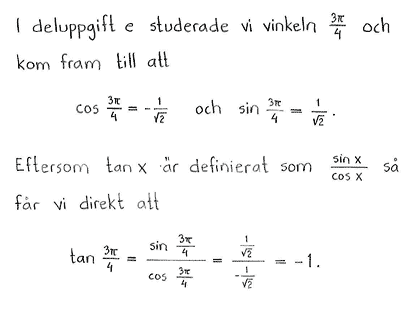 I deluppgift e studerade vi vinkeln 3π/4 och
kom fram till att
cos 3π/4 = -1/√2 och sin 3π/4 = 1/√2.
Eftersom tan x är definierat som sin x/cos x så
får vi direkt att
tan 3π/4 = (sin 3π/4)/(cos 3π/4) = (1/√2)/(-1/√2) = -1.